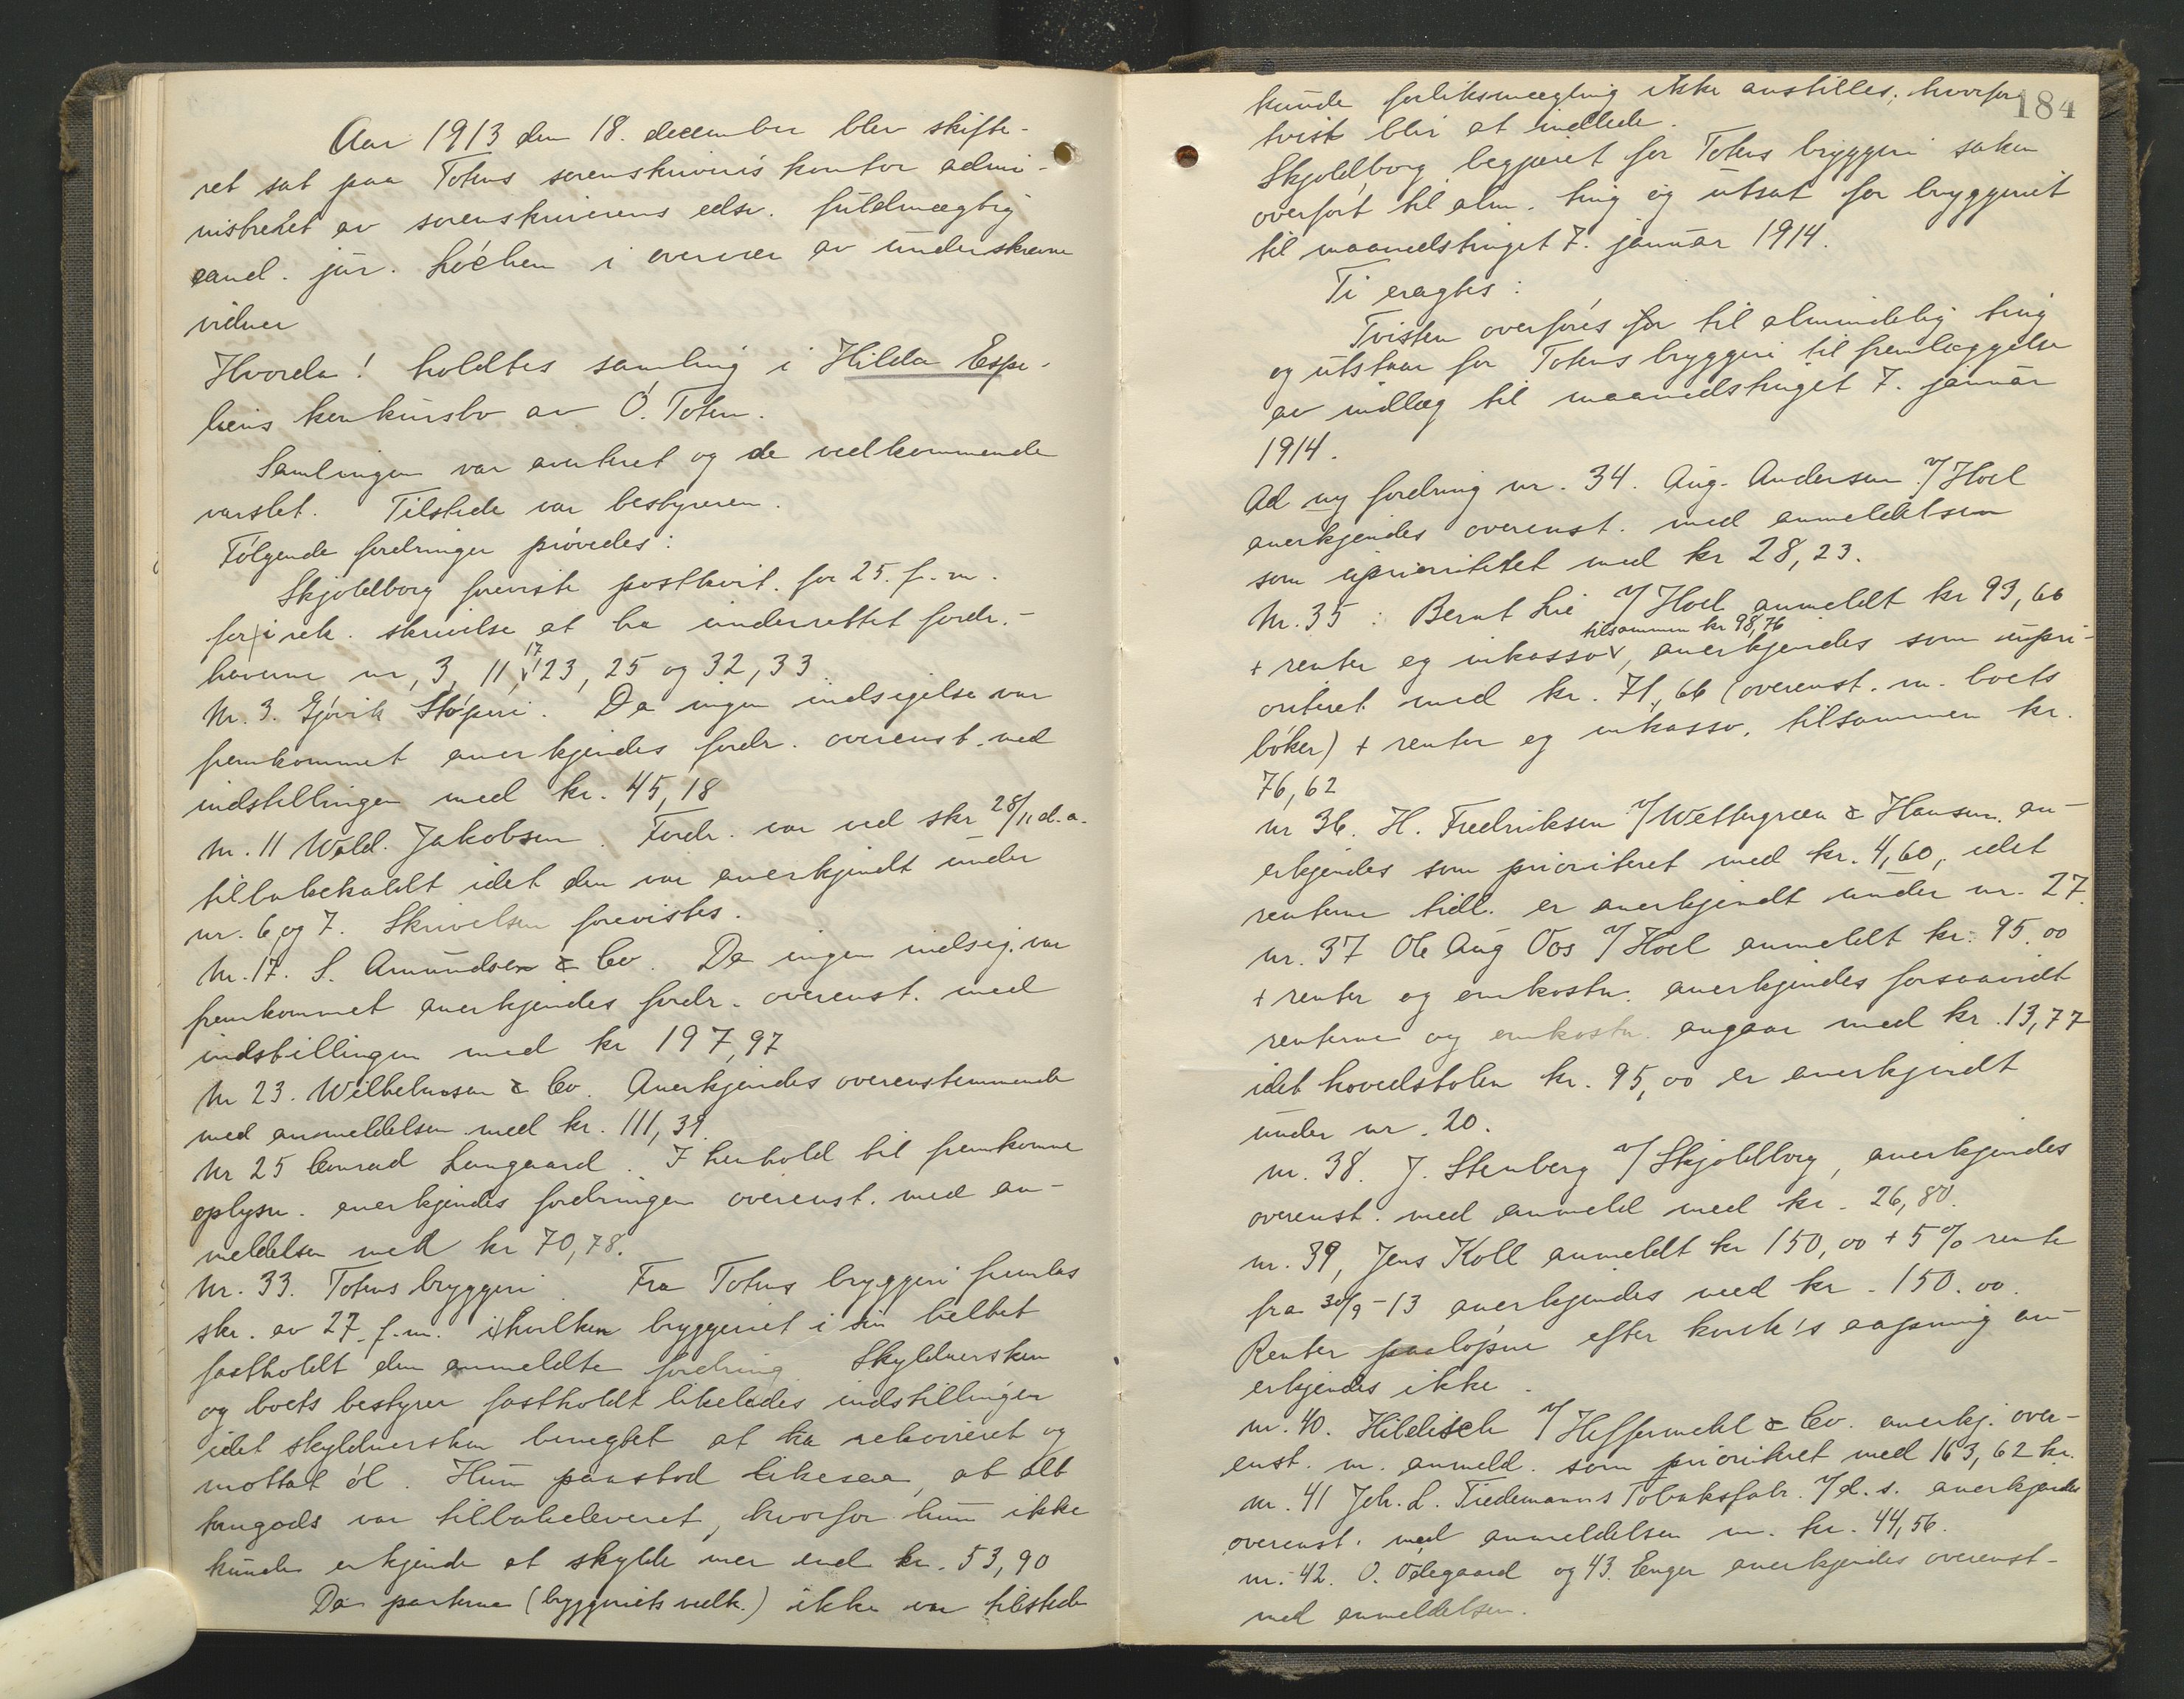 Aar 1913 den 18. december blev skifte-
ret sat paa Totens sorenskriveris kontor admi-
nistreret av sorenskriverens edsv. fuldmægtig
cand. jur. Löchen i overvær av underskrevne
vidner
Hvorda! holdtes samling i Hilda Espe-
liens konkursbo av Ö. Toten.
Samlingen var averteret og de vedkommende
varslet. Tilstede var bestyreren.
Følgende fordringer prövedes:
Skjoldborg foreviste postkvit. for 25. f. m.
for i rek. skrivelse at ha underrettet fordr.-
haverne nr, 3, 11, 17, 23, 25 og 32, 33
Nr. 3. Gjövik Stöperi. Da ingen indsigelse var
fremkommet anerkjendes fordr. overenst. med
indstillingen med kr. 45,18
Nr. 11 Wald. Jakobsen. Fordr. var ved skr 28/11 d.a.
tilbakekaldt idet den var anerkjendt under
nr. 6 og 7. Skrivelsen forevistes.
Nr. 17. S. Amundsen & Co. Da ingen indsig. var
fremkommet anerkjendes fordr. overenst. med
indstillingen med kr 197,97
Nr 23. Wilhelmsen & Co. Anerkjendes overenstemmende
med anmeldelsen med kr. 111,39.
Nr 25 Conrad Langaard. I henhold til fremkomne
oplysn. anerkjendes fordringen overenst. med an-
meldelsen med kr 70,78.
Nr. 33. Totens bryggeri. Fra Totens bryggeri fremlas
skr. av 27. f. m. i hvilken bryggeriet i sin helhet
fastholdt den anmeldte fordring. Skyldnersken
og boets bestyrer fastholdt likeledes indstillingen
idet skyldnersken benegtet at ha rekvireret og
mottat öl. Hun paastod likesaa, at alt
tomgods var tilbakeleveret, hvorfor hun ikke
kunde erkjende at skylde mer end kr. 53,90
Da parterne (bryggeriets vedk.) ikke var tilstede
184
kunde forliksmægling ikke anstilles, hvorfor
tvist blir at indlede.
Skjoldborg begjæret for Totens bryggeri saken
overfört til alm. ting og utsat for bryggeriet
til maanedstinget 7. januar 1914.
Ti eragtes:
Tvisten overföres for til almindelig ting
og utstaar for Totens bryggeri til fremlæggelse
av indlæg til maanedstinget 7. januar
1914.
Ad ny fordring nr. 34. Aug. Andersen v/ Hoel
anerkjendes overenst. med anmeldelsen
som uprioritetet med kr 28,23.
Nr. 35: Bernt Lie v/ Hoel anmeldt kr 93,66
tilsammen kr 98,76
+ renter og inkasso, anerkjendes som upri-
oriteret med kr. 71,66 (overenst. m. boets
böker) + renter og inkasso, tilsammen kr.
76,62
nr 36. H. Fredriksen v/ Wettergreen & Hansen, an-
erkjendes som prioriteret med kr. 4,60, idet
renterne tidl. er anerkjendt under nr. 27.
nr. 37 Ole Aug Oos v/ Hoel anmeldt kr. 95.00
+ renter og omkostn. anerkjendes forsaavidt
renterne og omkostn. angaar med kr. 13,77
idet hovedstolen kr. 95,00 er anerkjendt
under nr. 20.
nr. 38. J. Stenberg v/ Skjoldborg, anerkjendes
overenst. med anmeld med kr. 26,80.
nr. 39, Jens Koll anmeldt kr 150,00 + 5% rente
fra 30/9-13 anerkjendes med kr. 150.00.
Renter paalöpne efter konk's aapning an-
erkjendes ikke.
nr. 40. Hildisch v/ Heffermehl & Co. anerkj. over-
enst. m. anmeld. som prioriteret med 163,62 kr.
nr. 41 Joh. L. Tiedemanns Tobaksfabr. v/ d. s. anerkjendes
overenst. med anmeldelsen m. kr. 44,56.
nr. 42. O. Ödegaard og 43. Enger anerkjendes overenst-
med anmeldelsen.